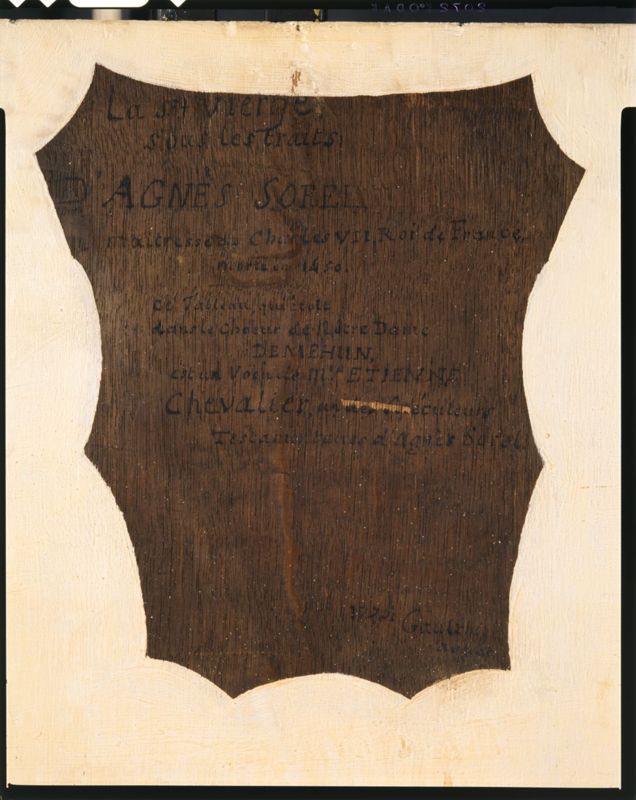 La Ste Vierge
sous les traits
D'AGNÈS SOREL
maîtresse de Charles VII, Roi de France,
morte en 1450.
ce Tableau, qui étoit
dans le Choeur de Nôtre Dame
DE MEHUN,
est un Voeu de Mr ETIENNE
Chevalier, un des Exécuteurs
Testamentaires d'Agnès Sorel.
Gaulthier